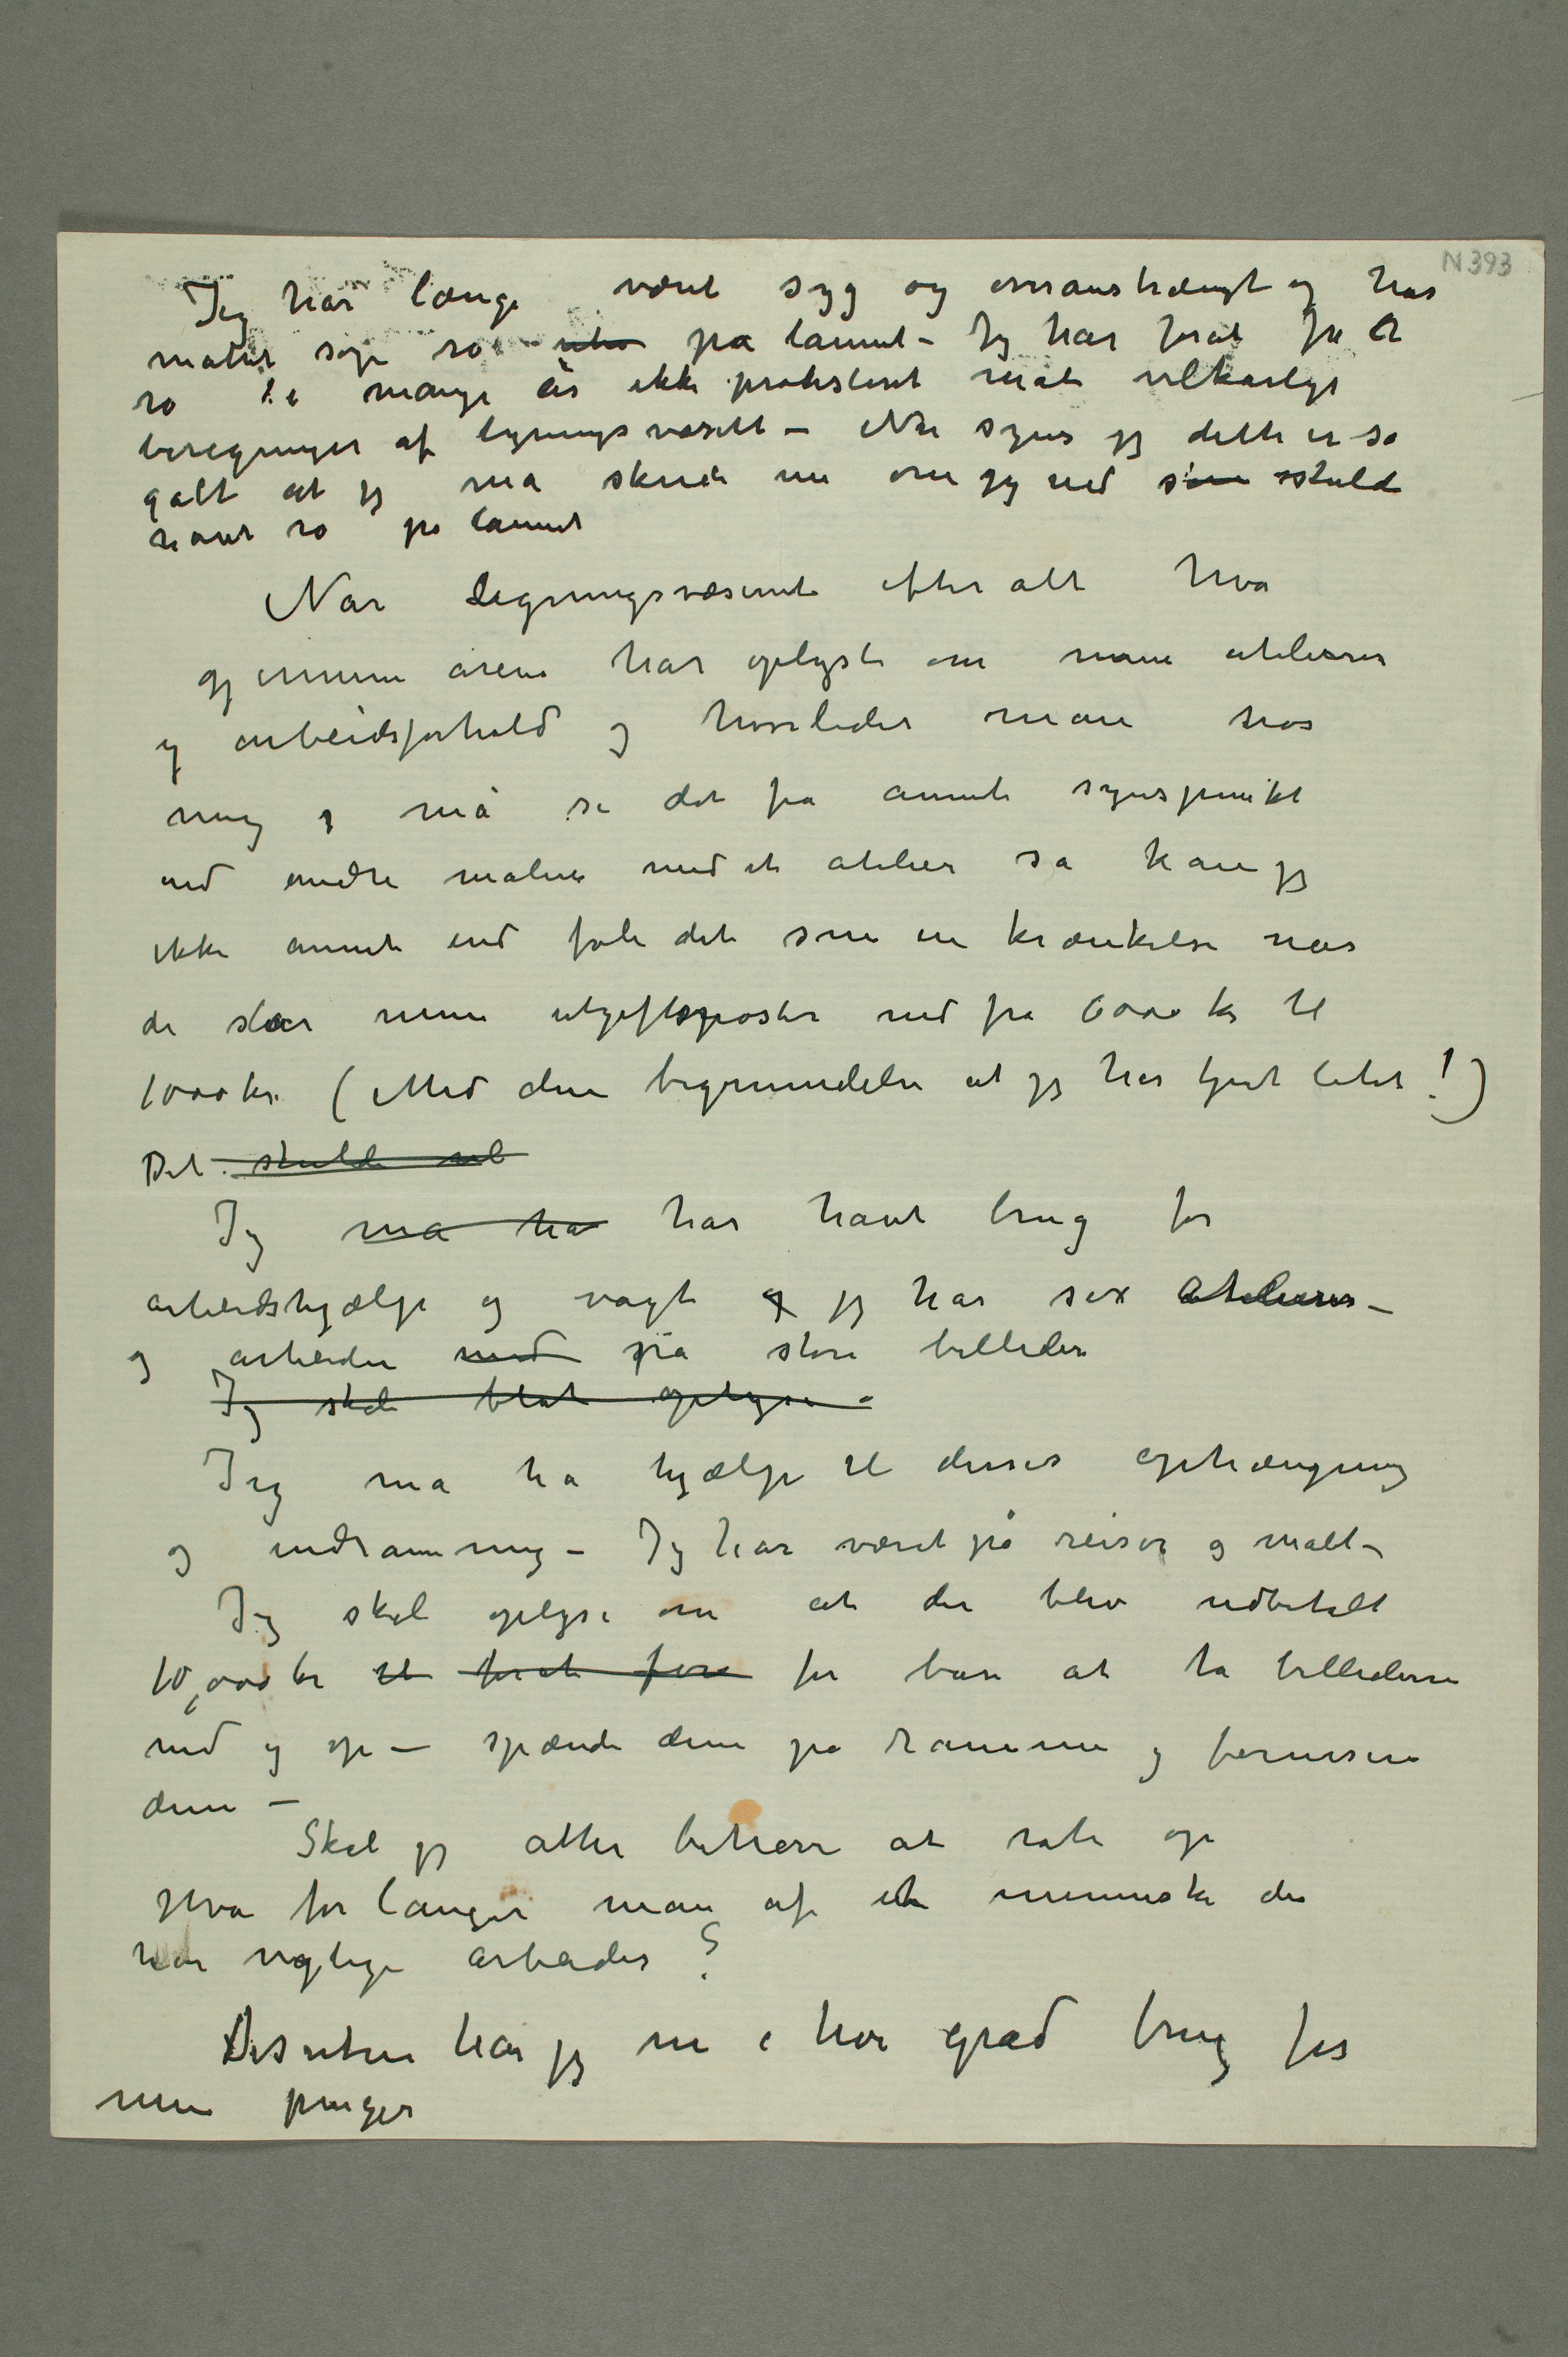 N 393
Jeg har længe været syg og overanstrængt og har
måttet søge ro uten på lannet – Jeg har forat få
ro i mange år ikke protesteret mot vilkårlige
beregninger af ligningsvæsenet – Nu synes jeg dette er så
galt at jeg må skride nu om jeg end som skulde
havt ro på lannet
Når Ligningsvæsenet efter alt hva
gjennem årene har oplyst om mine atelierer
og arbeidsforhold og hvorledes man hos
mig må se det fra annet synspunkt
end andre malere med et atelier så kan jeg
ikke annet end føle det som en krænkelse når
de slår mine utgiftsposter ned fra 6000 kr til
1000 kr. (Med den begrundelse at jeg har tjent litet!)
Det skulde vel
Jeg må ha har havt brug for
arbeidshjælp og vagt og jeg har sex atelierer –
og arbeider med på store billeder
Jeg skal blot oplyse
Jeg må ha hjælp til disses ophængning
og indramning – Jeg har været på reiser og malt –
Jeg skal oplyse om at der blev udbetalt
10,000 kr til forat for bare at ta billederne
ned og op – spænde dem på ramme og fernisere
dem –
Skal jeg atter behøve at råbe op
Hva forlanger man af et menneske der
har vigtige arbeider?
Desuten har jeg nu i høi grad brug for
mine penger